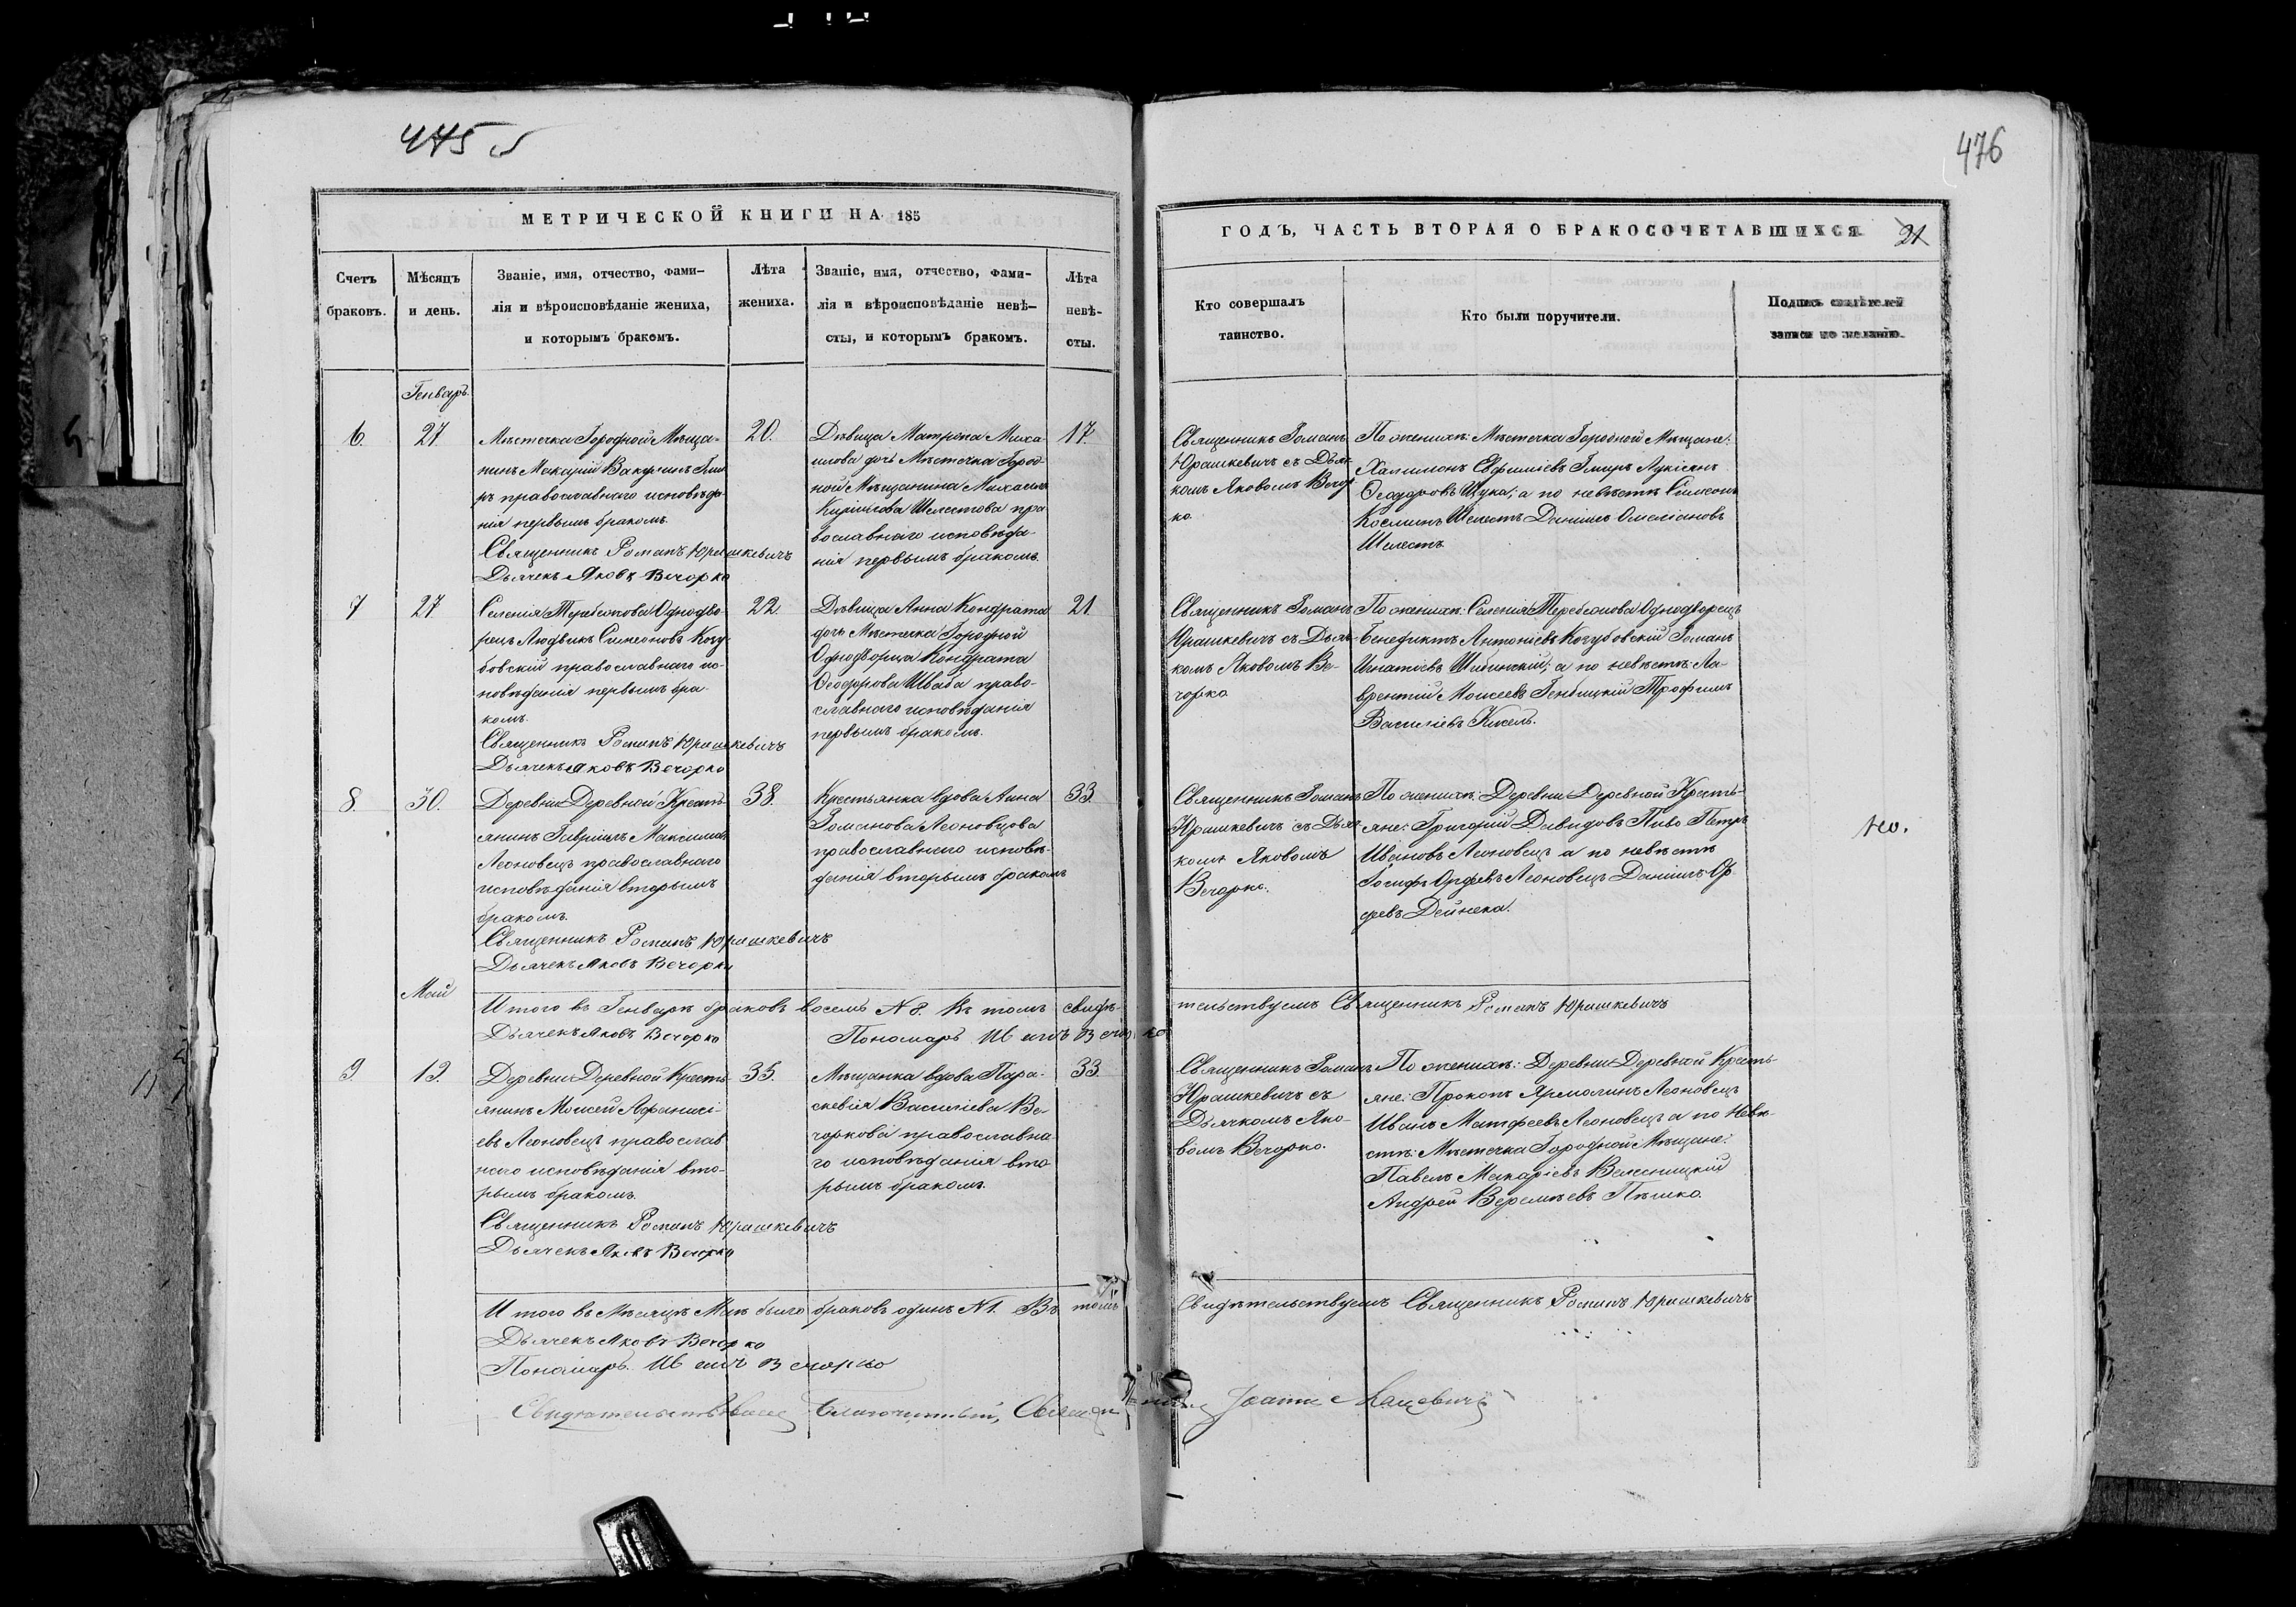 475
476
МЕТРИЧЕСКОЙ КНИГИ НА 185
ГОДЪ, ЧАСТЬ ВТОРАЯ О БРАКОСОЧЕТАВШИХСЯ 21
Счетъ
браковъ.
Мѣсяцъ
и день.
Званіе, имя, отчество, фами-
лія и вѣроисповѣданіе жениха,
и которымъ бракомъ.
Лѣта
жениха.
Званіе, имя, отчество, фами-
лія и вѣроисповѣданіе невѣ-
сты, и которымъ бракомъ.
Лѣта
невѣ-
сты.
Кто совершалъ
таинство.
Кто были поручители.
Подпись свидѣтелей
записи по желанію.
Генваръ.
6.
27
Мѣстечка Городной Мѣща-
нинъ Макарій Вакулинъ
православнаго исповѣда-
нія первымъ бракомъ.
Священникъ Романъ Юрашкевичъ
Дьячекъ Яковъ Вечорко
20.
Дѣвица Матрона Миха
илова дочь Мѣстечка Город-
ной Мѣщанина Михаила
Кирилова Шелестова пра
вославнаго исповѣда-
нія первымъ бракомъ.
17.
Священникъ Романъ
Юрашкевичъ съ Дьяч
комъ Яковомъ Вечор
ко.
По женихѣ: Мѣстечка Городной Мѣщане:
Халимонъ Евфиміевъ Гмиръ Лукіянъ
Ѳеодоровъ Щука; а по невѣстѣ Симеонъ
Косминъ Шелестъ Даніилъ Омеліановъ
Шелестъ
7
27
Селенія Теребежова Однодво-
рецъ Людвикъ Симеоновъ Когу-
бовскій православнаго ис-
повѣданія первымъ бра-
комъ.
Священникъ Романъ Юрашкевичъ
Дьячекъ Яковъ Вечорко
22.
Дѣвица Анна Кондрата
дочь Мѣстечка Городной
Однодворца Кондрата
Ѳеодорова Шваба право-
славнаго исповѣданія
первымъ бракомъ.
21.
Священникъ Романъ
Юрашкевичъ съ Дьяч-
комъ Яковомъ Ве-
чорко
По женихѣ: Селенія Теребежова Однодворецъ
Бенедиктъ Антоніевъ Когубовскій Романъ
Игнатіевъ Шибинскій; а по невѣстѣ: Ла-
врентій Моисеевъ Гембицкій Трофимъ
Василіевъ Кисель.
8.
30.
Деревни Деревной Кресть-
янинъ Гавріилъ Максимовъ
Леоновецъ православнаго
исповѣданія вторымъ
бракомъ.
Священникъ Романъ Юрашкевичъ
Дьячекъ Яковъ Вечорко
38.
Крестьянка вдова Анна
Романова Леоновцова
православнаго исповѣ-
данія вторымъ бракомъ
33.
Священникъ Романъ
Юрашкевичъ съ Дьяч
комъ Яковомъ
Вечорко.
По женихѣ: Деревни Деревной Кресть-
яне: Григорій Давидовъ Пиво Петръ
Ивановъ Леоновецъ а по невѣстѣ
Іосифъ Ордѣевъ Леоновецъ Даніилъ Ор-
деевъ Дейнека.
Май
Итого въ Генварѣ браковъ восемь N 8. Въ томъ свидѣ-
тельствуемъ Священникъ Романъ Юрашкевичъ
Дьячекъ Яковъ Вечорко
Пономарь Иванъ Вечорко
9.
19.
Деревни Деревной Кресть-
янинъ Моисей Афанасі-
евъ Леоновецъ православ
наго исповѣданія вто-
рымъ бракомъ.
Священникъ Романъ Юрашкевичъ
Дьячекъ Яковъ Вечорко
35.
Мѣщанка вдова Пара-
скевія Василіева Ве-
чоркова православна-
го исповѣданія вто
рымъ бракомъ.
33.
Священникъ Романъ
Юрашкевичъ съ
Дьячкомъ Яко-
вомъ Вечорко.
По женихѣ: Деревни Деревной Кресть-
яне: Прокопъ Ярмолинъ Леоновецъ
Иванъ Матфеевъ Леоновецъ а по невѣ-
стѣ: Мѣстечка Городной Мѣщане:
Павелъ Макаріевъ Велесницкій
Андрей Веремѣевъ Пѣшко.
Итого въ Мѣсяцѣ Маѣ было браковъ одинъ N 1. Въ томъ
свидѣтельствуемъ Священникъ Романъ Юрашкевичъ
Дьячекъ Яковъ Вечорко
Пономарь Иванъ Вечорко
Свидѣтельствовалъ Благочинный, Священникъ Іоаннъ Мацевичъ